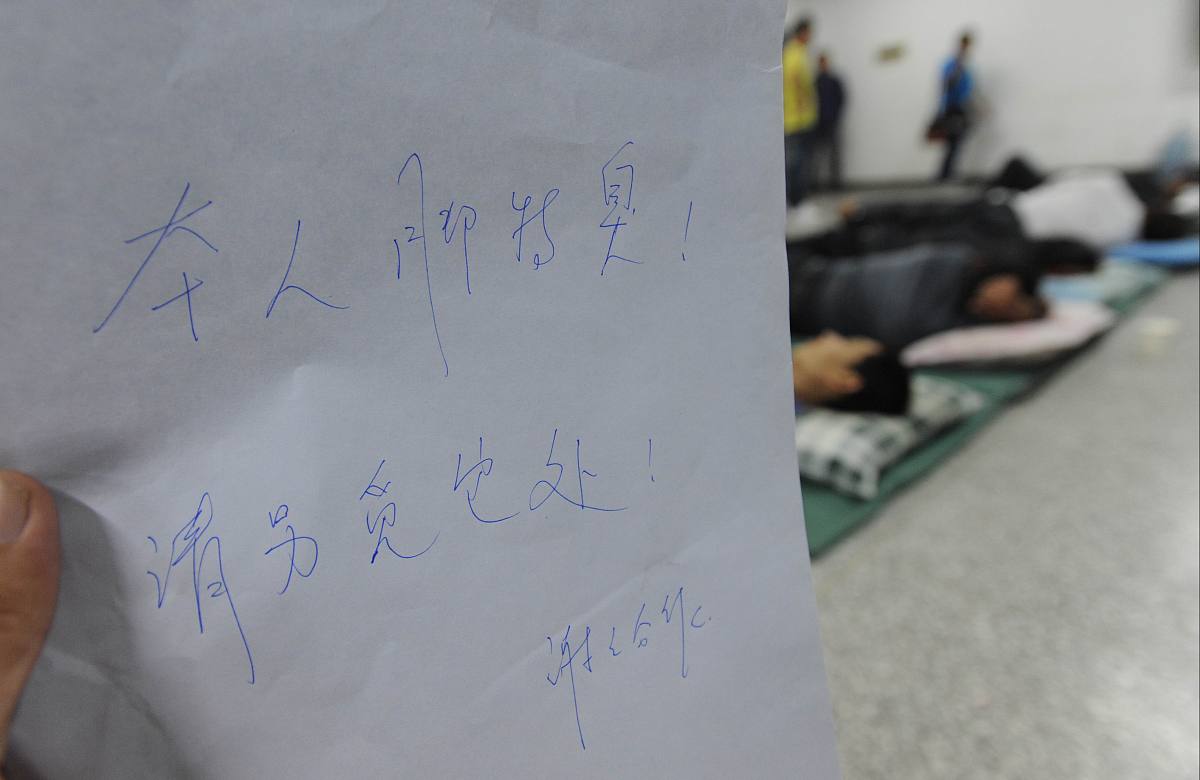 本人脚特臭!
请另觅它处!
谢谢合作